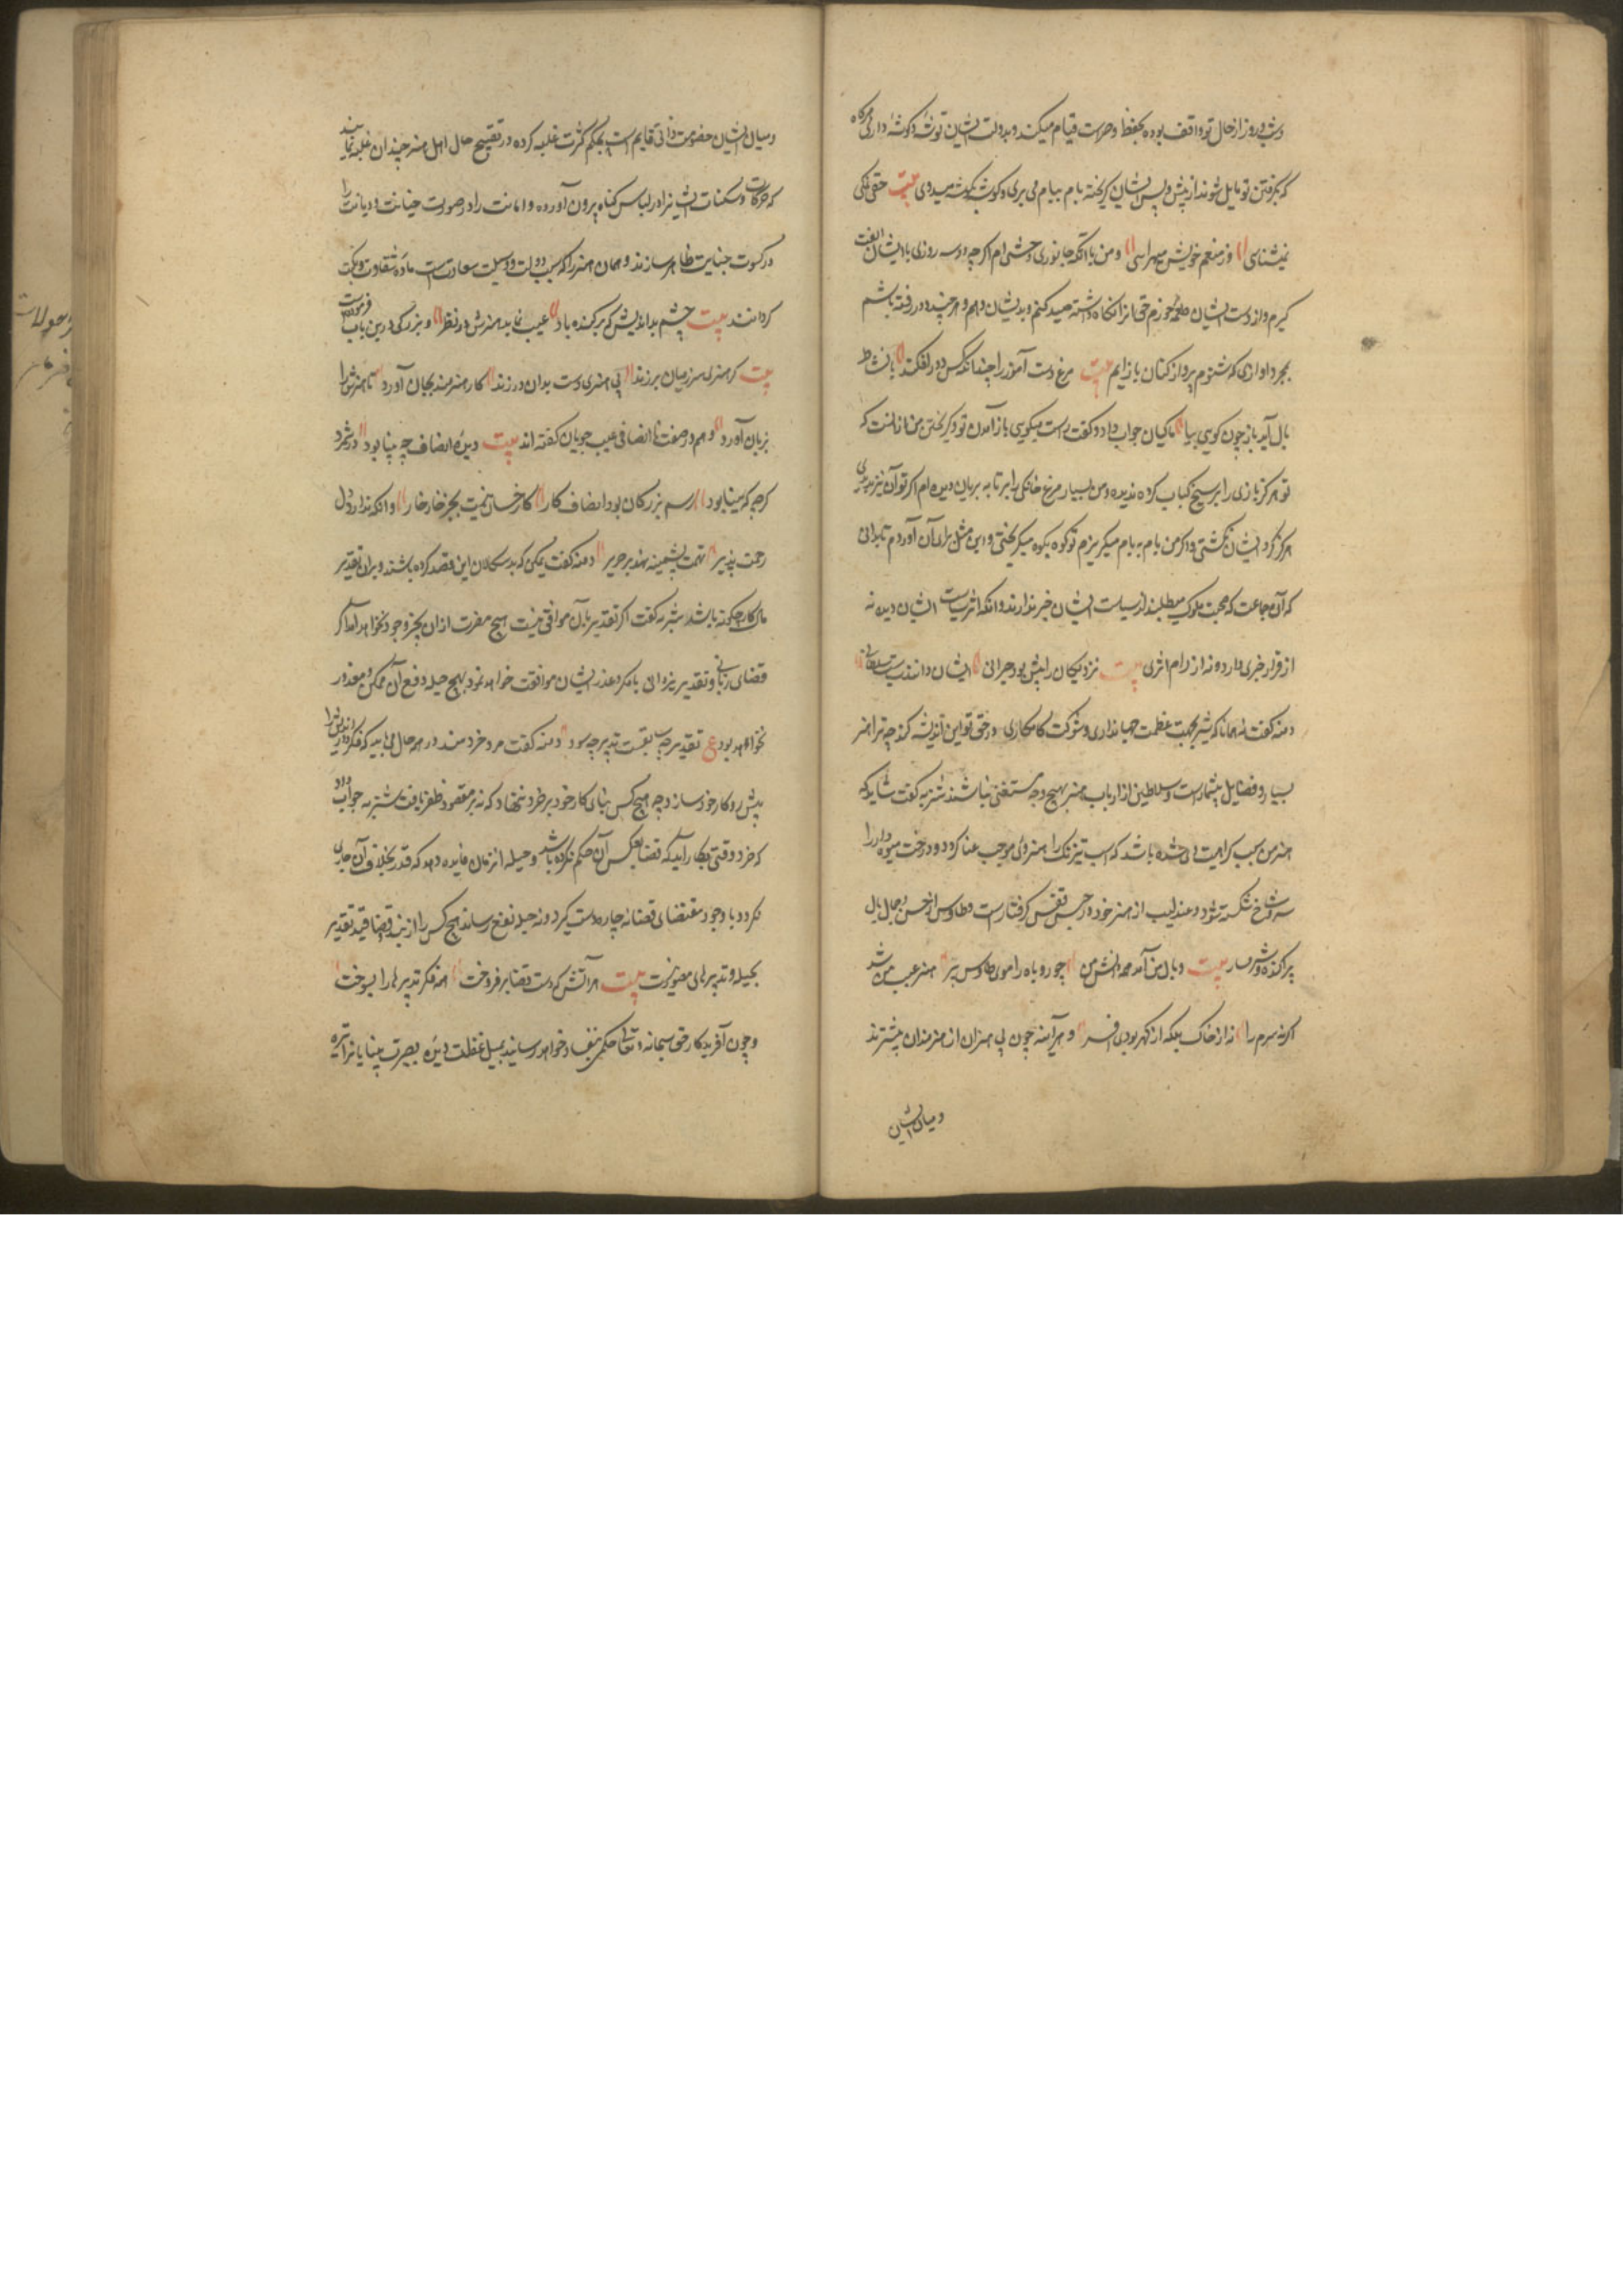 و شب و روز از حال تو واقف بوده بحفظ و حراست قیام میکنند و بدولت ایشان توشه و کوشه داری هرکاه
که بکرفتن تو مایل شوند از پیش و پس ایشان کریخته بام ببام می پری و کوشه بکوشه میدوی بیت حق نمکی
نمیشناسی از منعم خویش میهراسی و من با آنکه جانوری وحشی ام اکرچه دو سه روزی با ایشان الفت
کیرم و از دست ایشان طعمه خورم حق انرا نکاه داشته صید کنم و بدیشان دهم و هر چند دور رفته باشم
بمجرد اوازی که شنوم پرواز کنان باز ایم بیت مرغ دست آموز را چندانکه کس دور افکند با نشاط
بال آید باز چون کویی بیا ماکیان جواب داد و کفت راست میکویی باز آمدن تو و کریختن من از انست که
تو هرکز بازی را بر سیخ کباب کرده ندیده و من بسیار مرغ خانکی را بر تابه بریان دیده ام اکر تو آن نیز میدیدی
هرکز کرد ایشان نکشتی و اکر من بام به بام میکریزم تو کوه بکوه میکریختی و این مثل برای آن آوردم تا بدانی
که آن جماعت که صحبت ملوک میطلبند از سیاست ایشان خبر ندارند و آنکه اثر سیاست ایشان دیده نه
از قرار خبری دارد و نه از ارام اثری بیت نزدیکان را بیش بود حیرانی ایشان دانند سیاست سلطانی
دمنه کفت همانا که شیر بجهت عظمت جهانداری و شوکت کامکاری در حق تو این اندیشه کند چه ترا هنر
بسیار و فضایل بیشمار است و سلاطین از ارباب هنر بهیچ وجه مستغنی نباشند شنزبه کفت شاید که
هنر من سبب کراهیت وی شده باشد که اسب تیز تک را هنر وی موجب عنا کردد و درخت میوه دار را
سر و شاخ شکسته شود و عندلیب از هنر خود در حبس قفس کرفتار است و طاوس از حسن و جمال بال
پر اکنده و شرمسار بیت وبال من آمد همه دانش من چو روباه را موی طاوس پر هنر عیب من شد
اکرنه سرم را نه از خاک بلکه از کهر بودی افسر و هرآینه چون بی هنران از هنرمندان بیشترند
و میان ایشان
و میان ایشان خصومت ذاتی قایم است بحکم کثرت غلبه کرده در تقبیح حال اهل هنر چندان غلبه نمایند
که حرکات و سکنات ایشانرا در لباس کناه بیرون آورده و امانت را در صورت خیانت و دیانت را
در کسوت جنایت ظاهر سازند و همان هنر را که سبب دولت و وسیلت سعادتست ماده شقاوت و نکبت
کردانند بیت چشم بد اندیش که برکنده باد عیب نماید هنرش در نظر و بزرکی درین باب فرموده
بیت کر هنری سر زمیان برزند بی هنری دست بدان در زند کار هنرمند بجان آورد تا هنرش را
بزبان آورد و هم در صفت نا انصافی عیب جویان کفته اند بیت دیده انصاف چو بینا بود در شمرد
کرچه که مینا بود رسم بزرکان بود انصاف کار کار خسان نیست بجز خار خار و آنکه ندارد دل
رحمت پذیر تهمت پشمینه نهد بر حریر دمنه کفت ممکن که بدسکالان این قصد کرده باشند و برین تقدیر
مال کار چکونه باشد شنزبه کفت اکر تقدیر بآن موافق نیست هیچ مضرت از ان بحیز وجود نخواهد آمد اکر
قضای ربانی و تقدیر یزدانی با مکر و غدر ایشان موافقت خواهد نمود بهیچ حیله دفع آن ممکن و مقدور
نخواهد بود ع تقدیر چو سابقست تدبیر چه سود دمنه کفت مرد خردمند در هر حال می باید که فکر دوراندیش را
پیش رو کار خود سازد چه هیچ کس بنای کار خود بر خرد ننهاد که نه بر مقصود ظفر یافت شنزبه جواب داد
که خرد وقتی بکار آید که قضا بعکس آن حکم نکرده باشد و حیله انزمان فایده دهد که قدر بخلاف آن جاری
نکردد با وجود مقتضای قضا نه چاره دست کیرد و نه حیله نفع رساند هیچ کس را از بند قضا و قید تقدیر
بحیله و تدبیر رهایی متصور نیست بیت هر آتش که دست قضا بر فروخت همه فکر و تدبیرها را بسوخت
و چون آفریدکار حق سبحانه و تعالی حکمی بنفاذ خواهد رسانید بمیل غفلت دیده بصیرت بینایانرا تیره